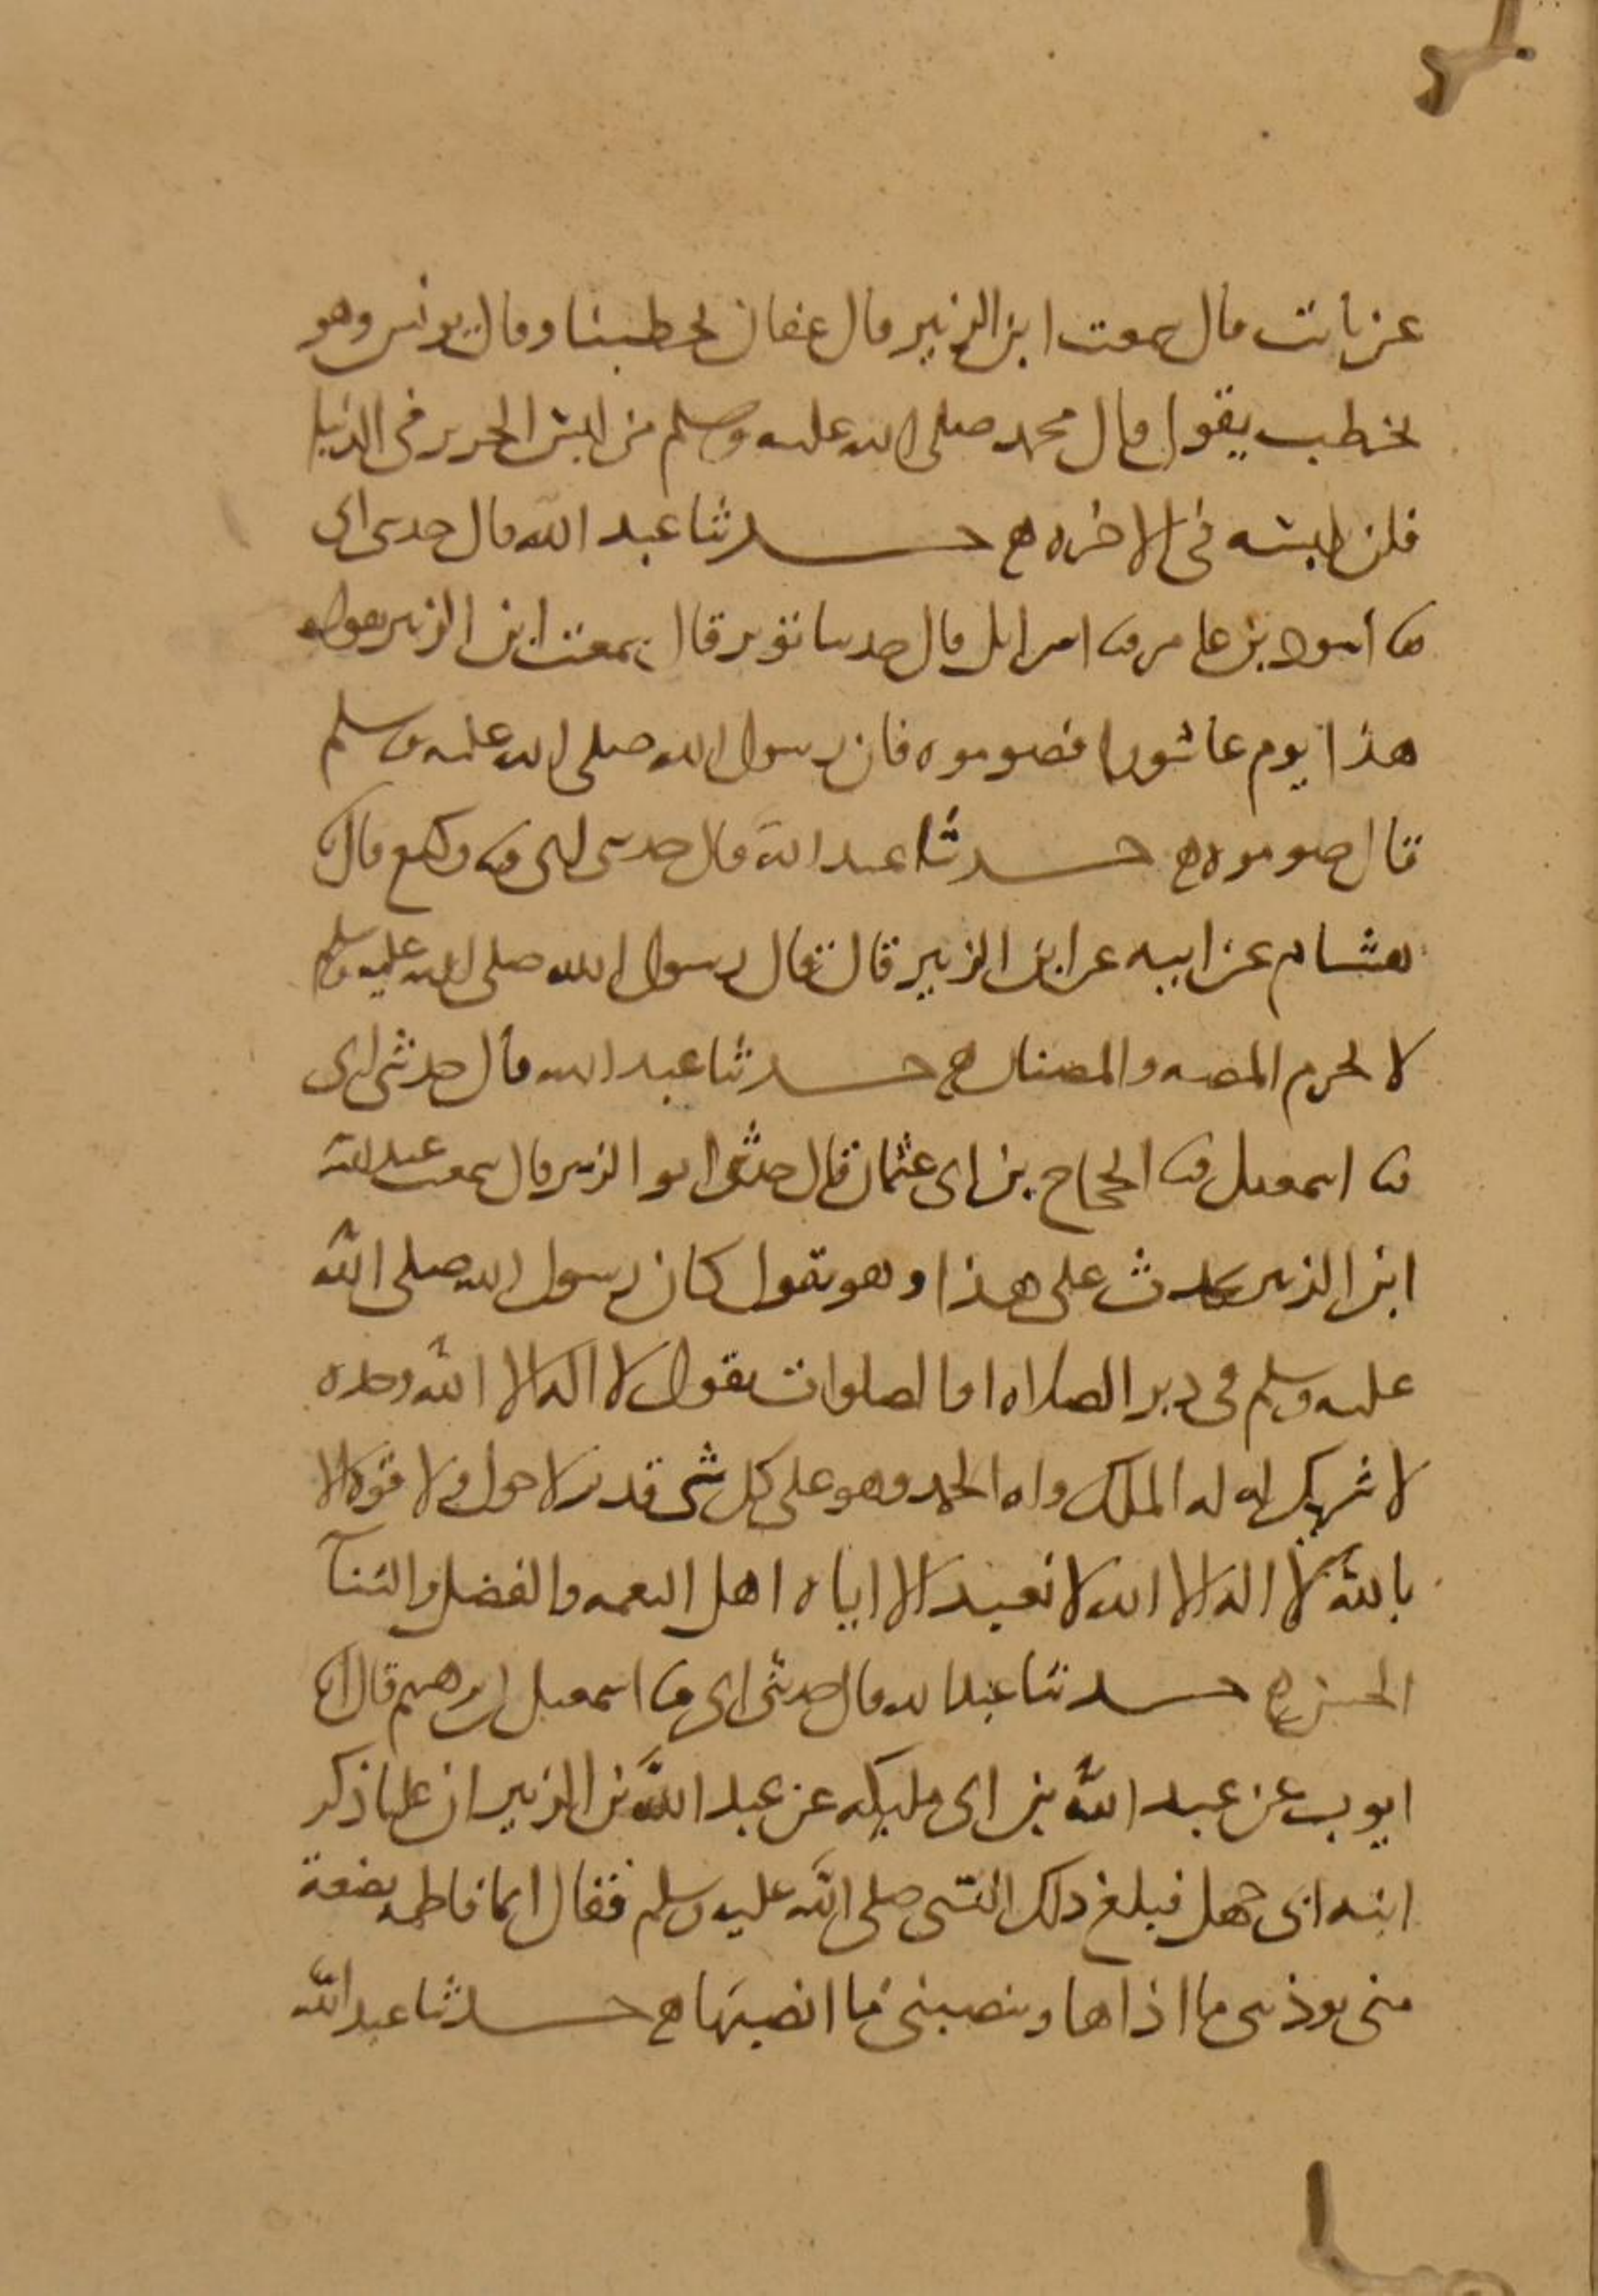 عن ثابت قال سمعت ابن الزبير قال عفان يخطبنا وقال يونس وهو
يخطب يقول قال محمد صلى الله عليه وسلم من لبس الحرير في الدنيا
فلن يلبسه في الاخره ه حدثنا عبد الله قال حدثى ابى
ثنا اسود بن عامر ثنا اسرايل قال حدثنا ثوير قال سمعت ابن الزبير يقول
هذا يوم عاشورا فصوموه فان رسول الله صلى الله عليه وسلم
قال صوموه ه حدثنا عبد الله قال حدثنى ابى ثنا وكيع قال ثنا
هشام عن ابيه عن ابن الزبير قال قال رسول الله صلى الله عليه وسلم
لا يحرم المصه والمصتان ه حدثنا عبد الله قال حدثنى ابى
ثنا اسمعيل ثنا الحجاج بن ابى عثمان قال حدثنى ابو الزبير قال سمعت عبد الله
ابن الزبير يحدث على هذا وهو يقول كان رسول الله صلى الله
عليه وسلم فى دبر الصلاه او الصلوات يقول لا اله الا الله وحده
لا شريك له له الملك وله الحمد وهو على كل شى قدير لا حول ولا قوه الا
بالله لا اله الا الله لا نعبد الا اياه اهل النعمه والفضل والثنآ
الحسن ه حدثنا عبد الله قال حدثنى ابى ثنا اسمعيل بن ابرهيم قال انا
ايوب عن عبد الله بن ابى مليكه عن عبد الله بن الزبير ان عليا ذكر
ابنه ابى جهل فبلغ ذلك النبى صلى الله عليه وسلم فقال انما فاطمه بضعة
منى يوذينى ما اذاها وينصبنى ما انصبها ه حدثنا عبد الله